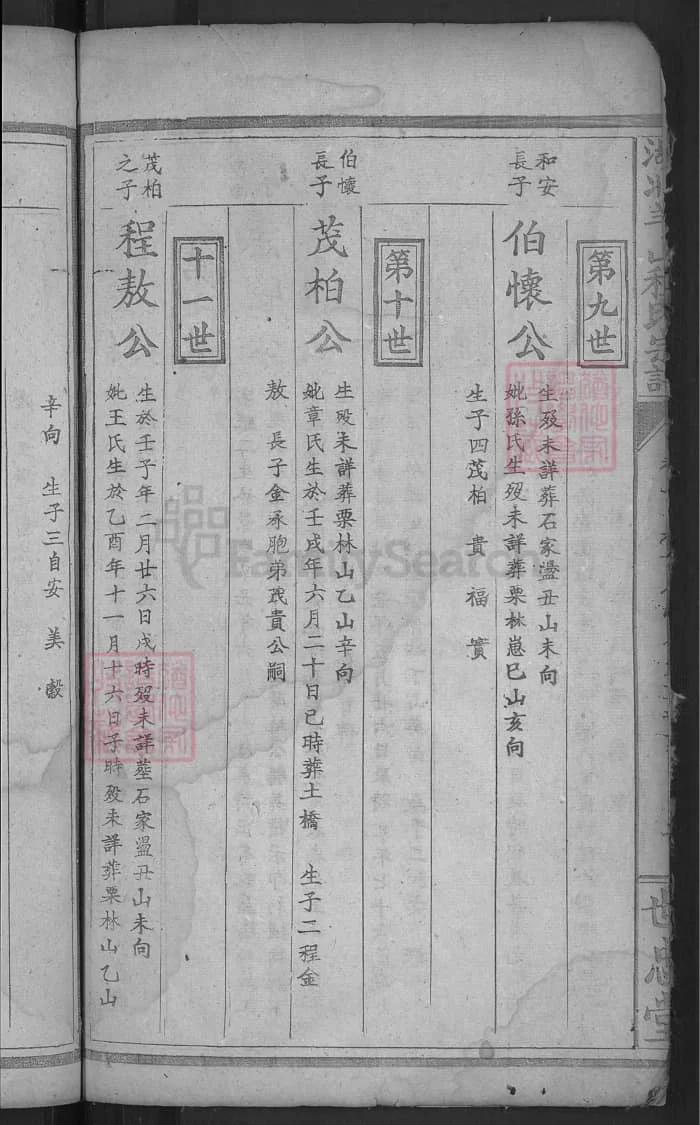 第九世
和安
長子
伯懷公
生歿未詳葬石家盪丑山未向
妣孫氏生歿未詳葬栗林崽巳山亥向
生子四茂柏 貴 福 實
第十世
伯懷
長子
茂柏公
生歿未詳葬栗林山乙山辛向
妣章氏生於壬戌年六月二十日巳時葬土橋 生子二程金
敖 長子金承胞弟茂貴公嗣
十一世
茂柏
之子
程敖公
生於壬子年二月廿六日戌時歿未詳塟石家盪丑山未向
妣王氏生於乙酉年十一月十六日子時歿未詳葬栗林山乙山
辛向 生子三自安 美 縠
世忠堂
FamilySearch